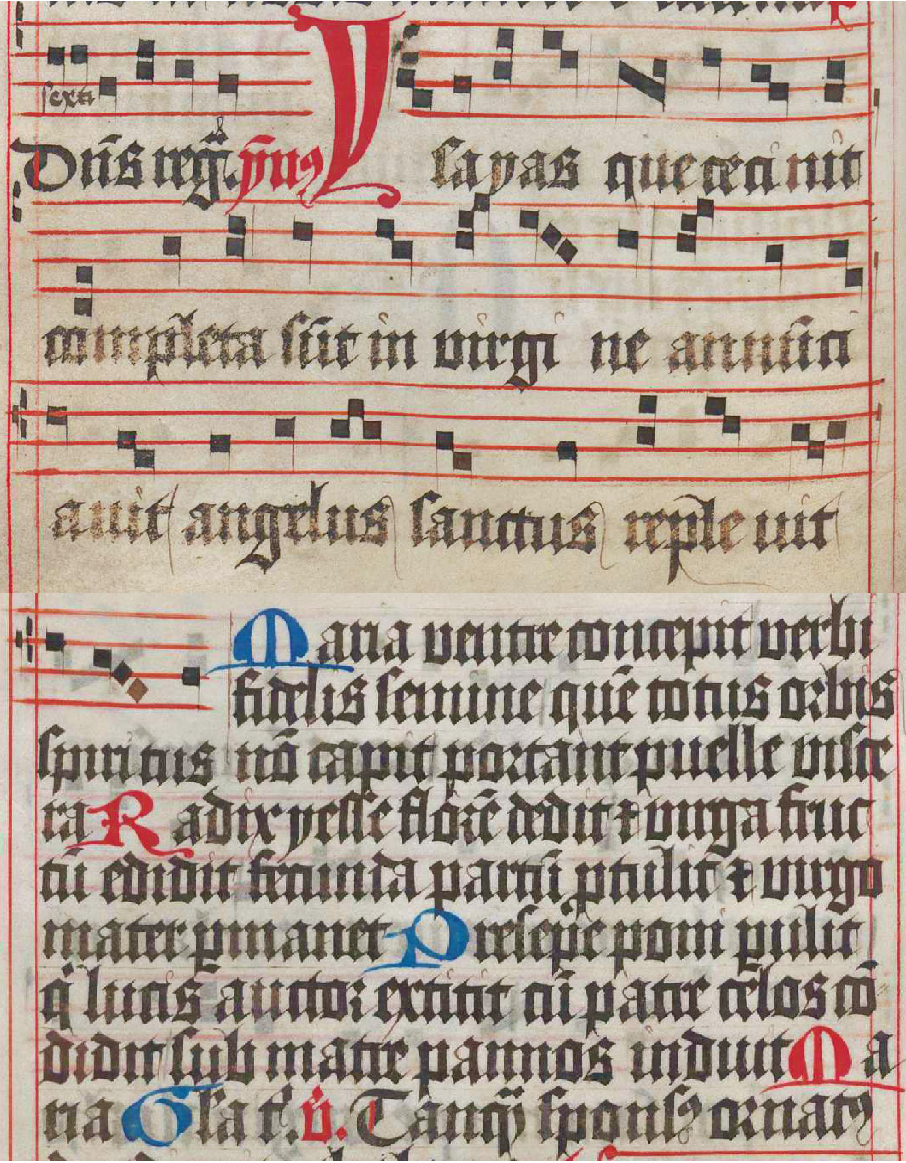 sexti
Dñs regñ. ỹnus Y sayas que ceci nit
completa sũt in virgi ne annũci
auit angelus sanctus reple uit
Maria ventre concepit verbi
fidelis semine quẽ totus orbis
spiritus nõ capit portant puelle visce
ra Radix yesse florẽ dedit ⁊ virga fruc
tũ edidit fecunda partũ ꝓtulit ⁊ virgo
mater ꝑmanet Presepe poni ꝑtulit
q̇ lucis auctor extitit cũ patre celos cõ
didit sub matre pannos induit Ma
ria Gĺa t̃. v̇. Tanq̃ sponsꝰ ornatꝰ